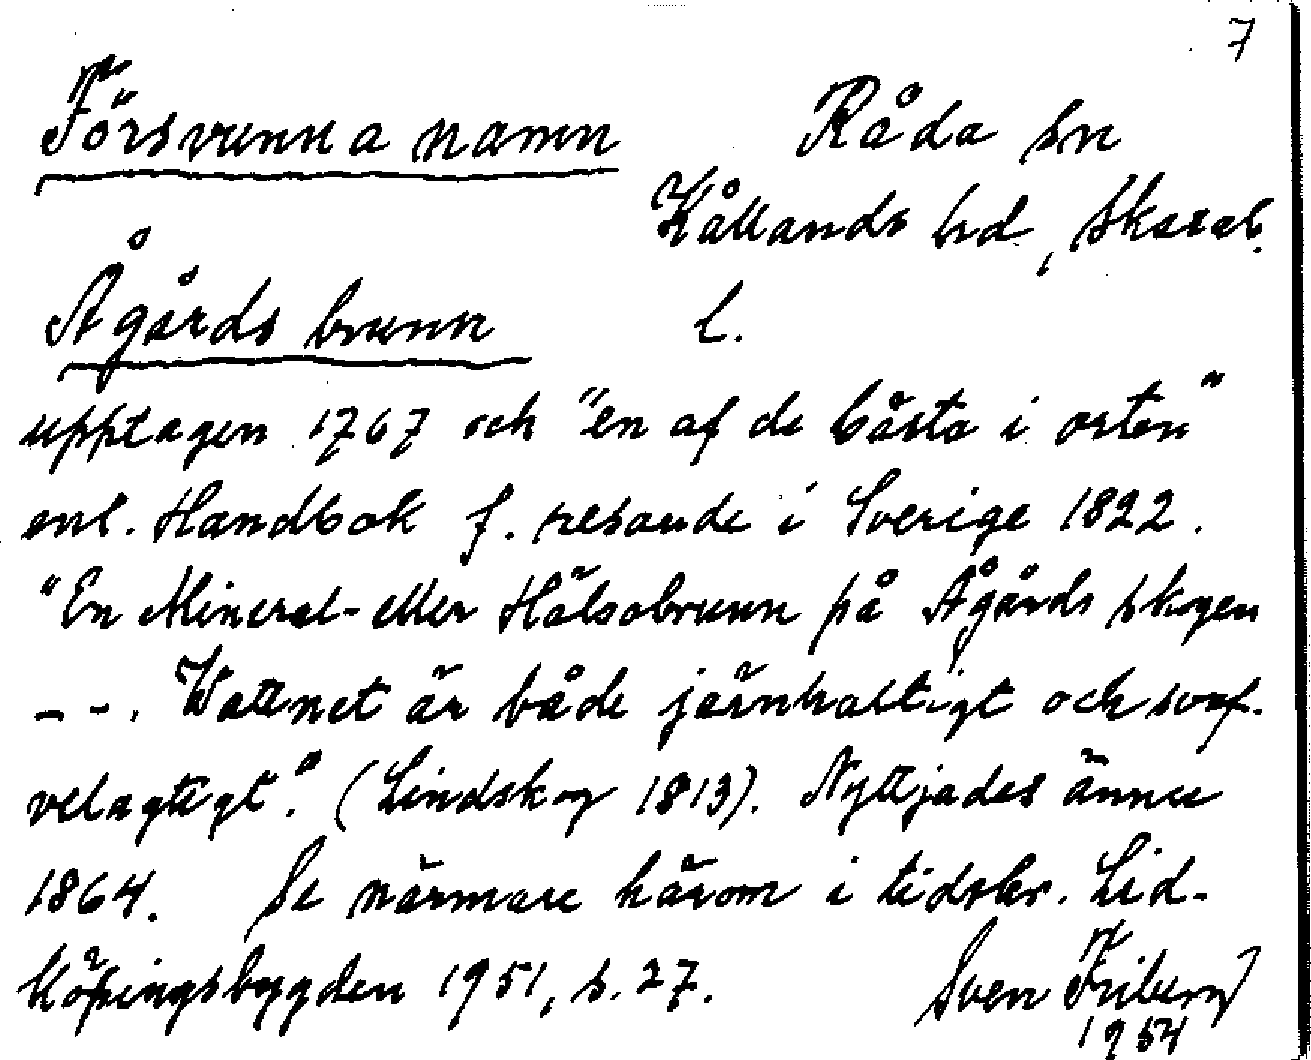 7
Försvunna namn
Råda sn
Kållands hd, Skarab.
l.
Ågårds brunn
upptagen 1767 och "en af de bästa i orten"
enl. Handbok f. resande i Sverige 1822.
"En Mineral- eller Hälsobrunn på Ågårds skogen
- - . Wattnet är både järnhaltigt och svaf-
velagtigt." (Lindskog 1813). Nyttjades ännu
1864. Se närmare härom i tidskr. Lid-
köpingsbygden 1951, s. 27.
Sven Friberg
1954